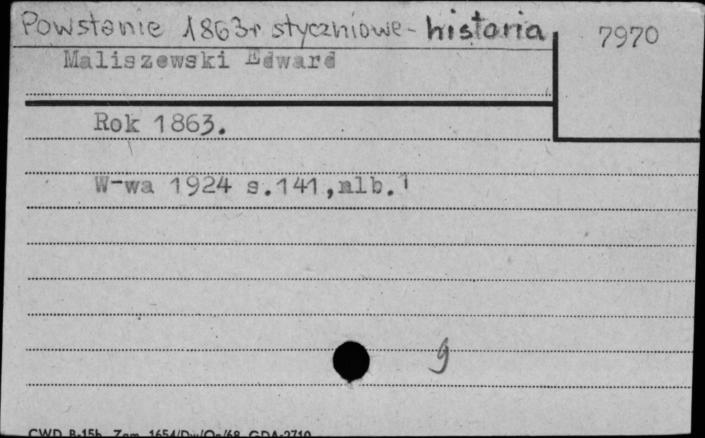 Powstanie 1863r styczniowe - historia
7970
Maliszewski Edward
Rok 1863.
W-wa 1924 s.141,nlb.1
g
CWD B-15b Zam. 1654/Dw/Og/68 GDA-2710